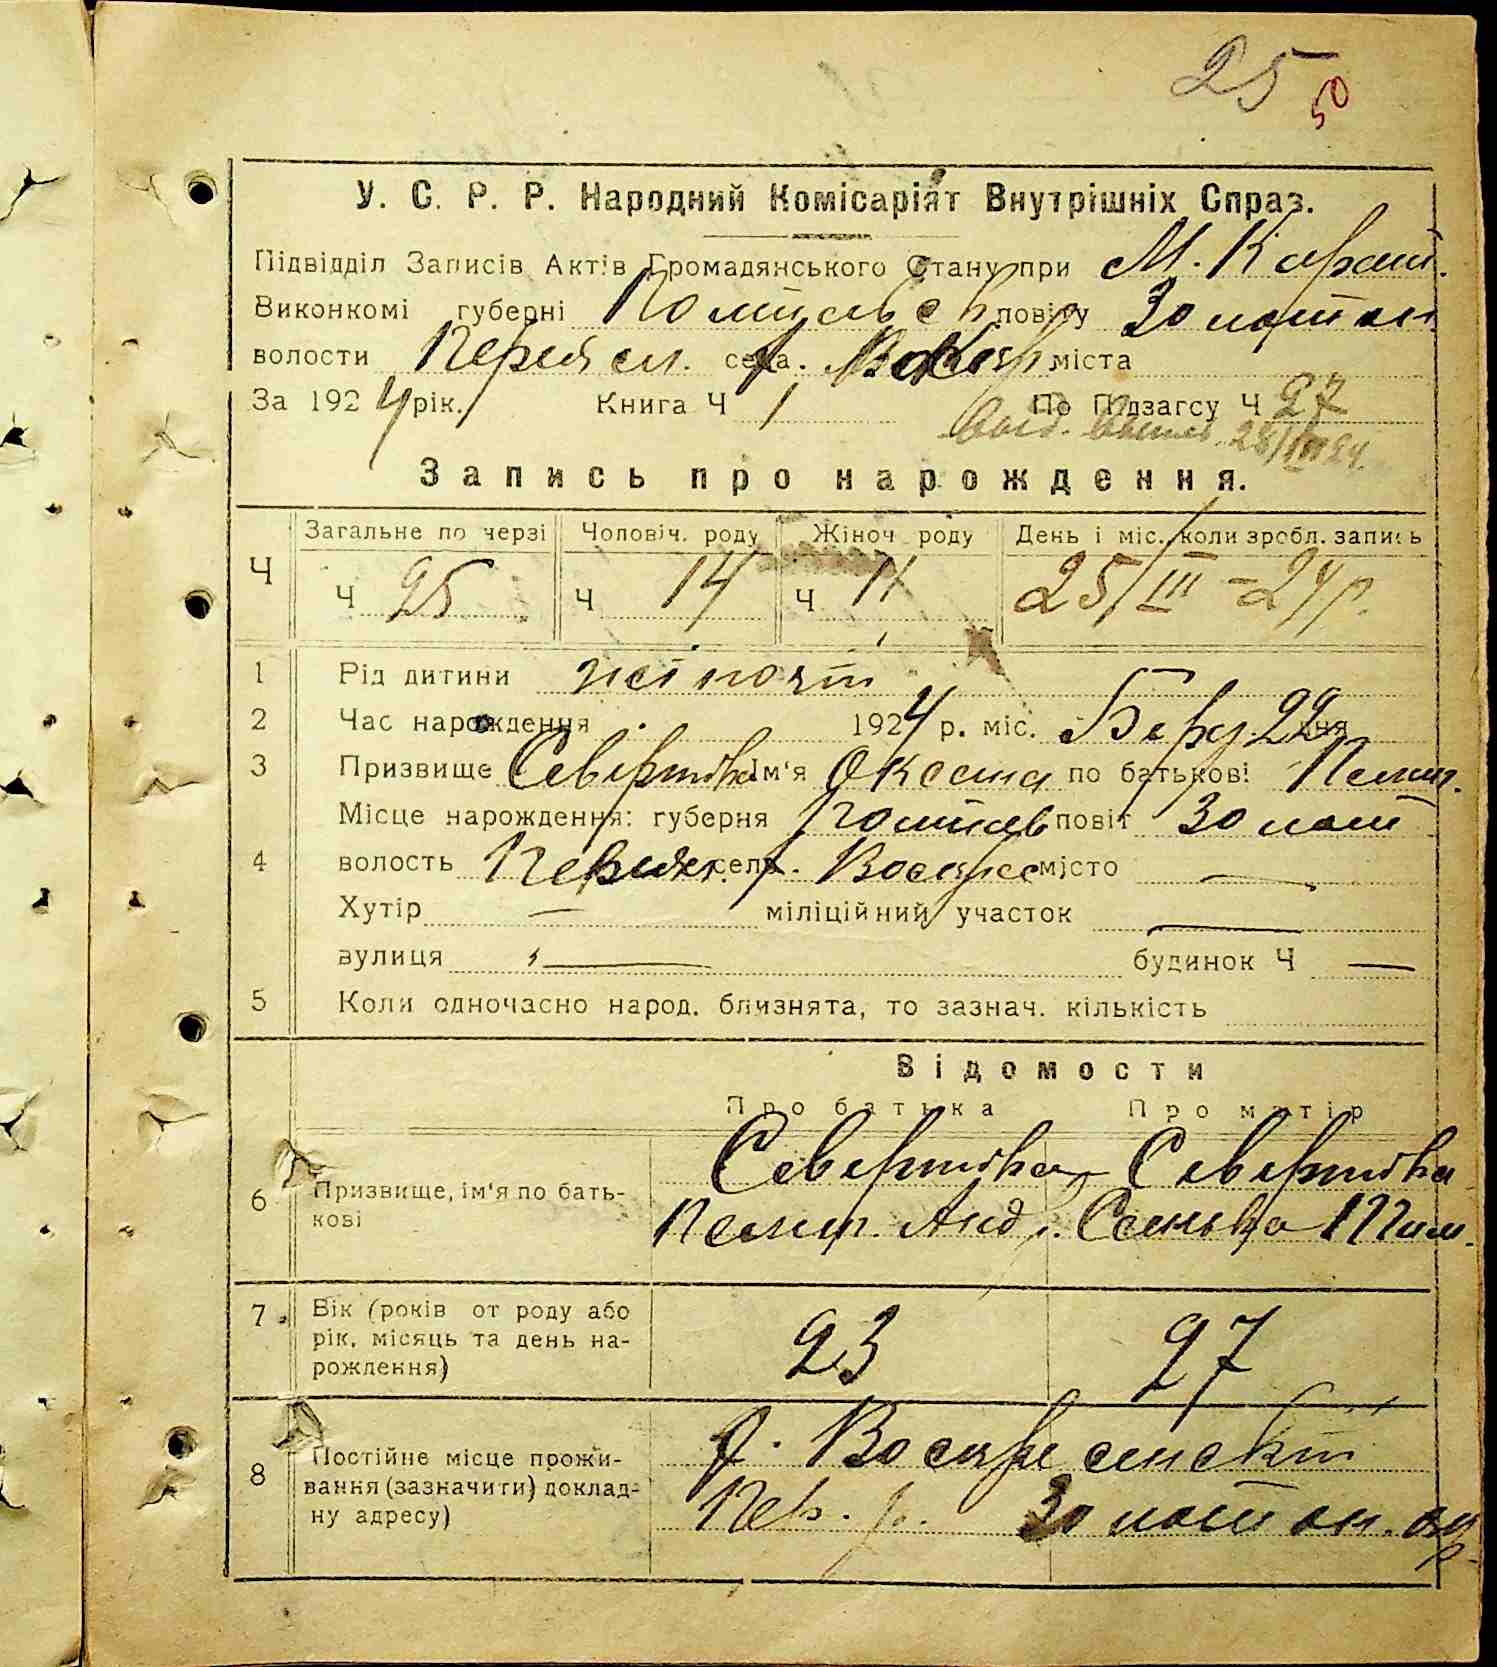 25
50
У. С. Р. Р. Народний Комісаріят Внутрішніх Справ.
Підвідділ Записів Актів Громадянського Стану при М. Карат.
Виконкомі губерні Полтавськ повіту Золотон
волости Переясл. села х. Воскр міста
За 1924 рік. Книга Ч 1 По Підзагсу Ч 27
28/III 24.
Запись про нарождення.
Загальне по черзі Чоловіч. роду Жіноч роду День і міс., коли зробл. запись
Ч Ч 25 Ч 14 Ч 11 25/III – 24 р.
1 Рід дитини жіночт
2 Час нарождення 1924 р. міс. Берез 22 дня
3 Призвище Севертока Ім'я Оксана по батькові Пелип.
Місце нарождення: губерня Полтав повіт Золот
4 волость Переясл. село х. Воскресе місто —
Хутір — міліційний участок —
вулиця — будинок Ч —
5 Коли одночасно народ. близнята, то зазнач. кількість
Відомости
Про батька Про матір
6 Призвище, ім'я по бать-
кові
Севертока Севертока
Пелип. Анд.
7 Вік (років от роду або
рік, місяць та день на-
рождення)
23 27
8 Постійне місце прожи-
вання (зазначити) доклад-
ну адресу)
х. Воскресенскт
Пер. р. Золотон. окр